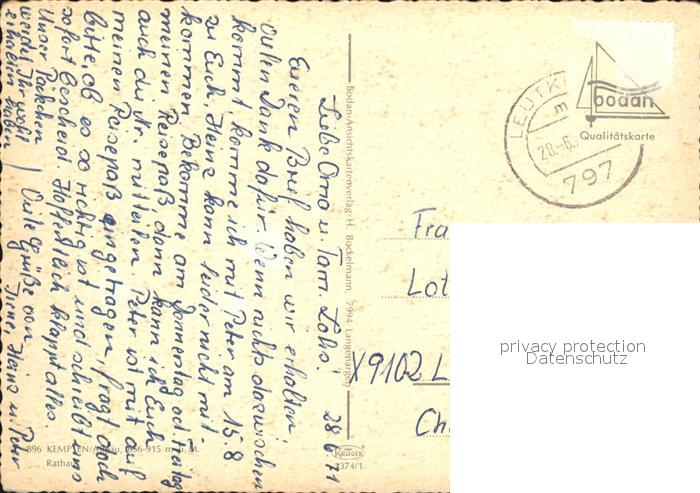 28 6 71
Liebe Oma u. Fam. Lohs!
Eueren Brief haben wir erhalten.
Vielen Dank dafür. Wenn nichts dazwischen
kommt, komme ich mit Peter am 15.8.
zu Euch, Heinz kann leider nicht mit-
kommen. Bekomme am Donnerstag od Freitag
meinen Reisepaß, dann kann ich Euch
auch die Nr. mitteilen. Peter ist mit auf
meinen Reisepaß eingetragen, fragt doch
bitte, ob es so richtig ist und schreibt uns
sofort Bescheid. Hoffentlich klappt alles.
Unser Päckchen
werdet Ihr wohl
erhalten haben.
Viele Grüße von
Irene, Heinz u. Peter
896 KEMPTEN/Allgäu, 656-915 m ü. M.
Rathaus
Bodan-Ansichtskartenverlag H. Bockelmann, 7994 Langenargen
KRÜGER
1374/1.
LEUTKI
m
28.-6.
797
bodan
Qualitätskarte
Fra
Lot
X9102 L
Ch
privacy protection
Datenschutz